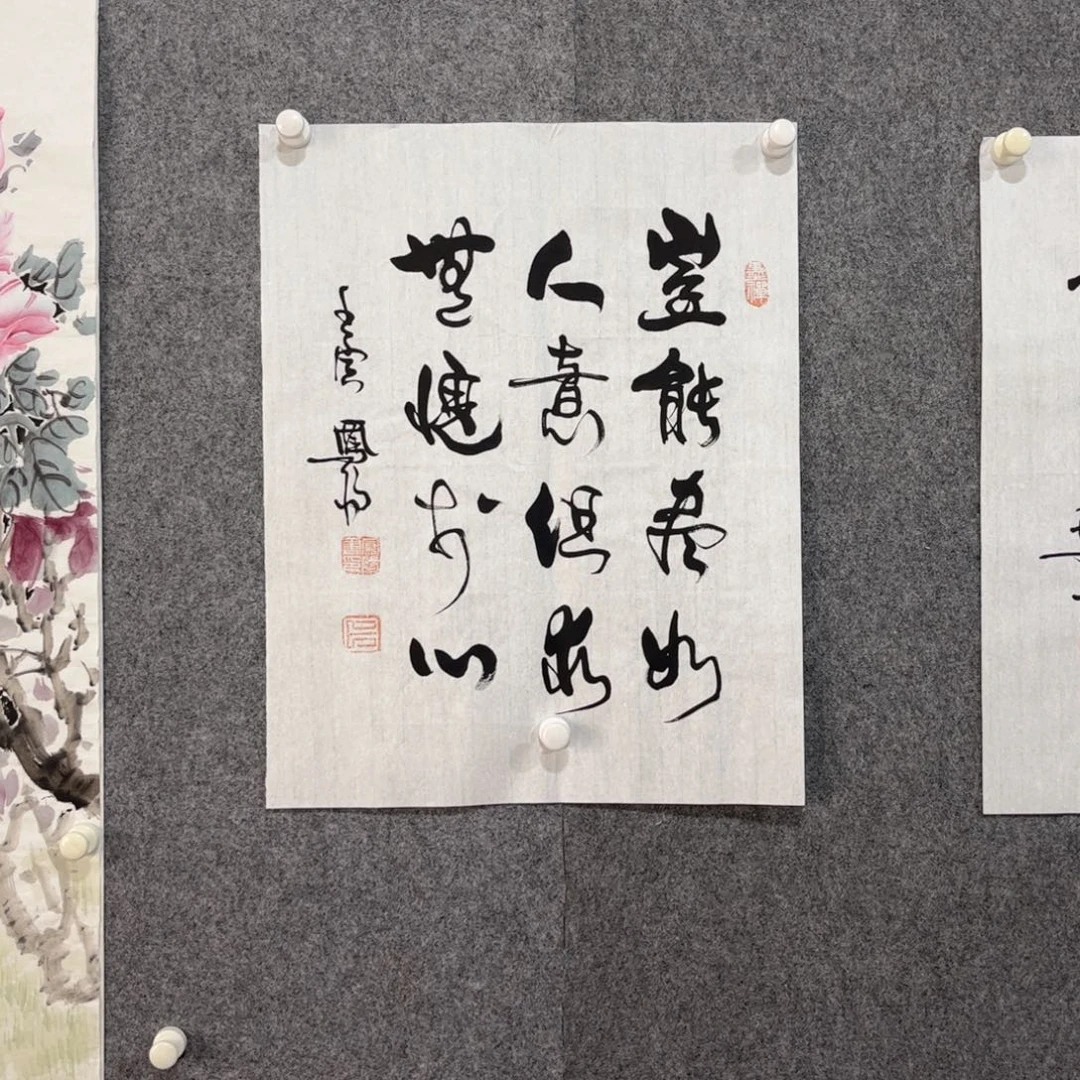 豈能盡如
人意但求
無愧於心
壬寅